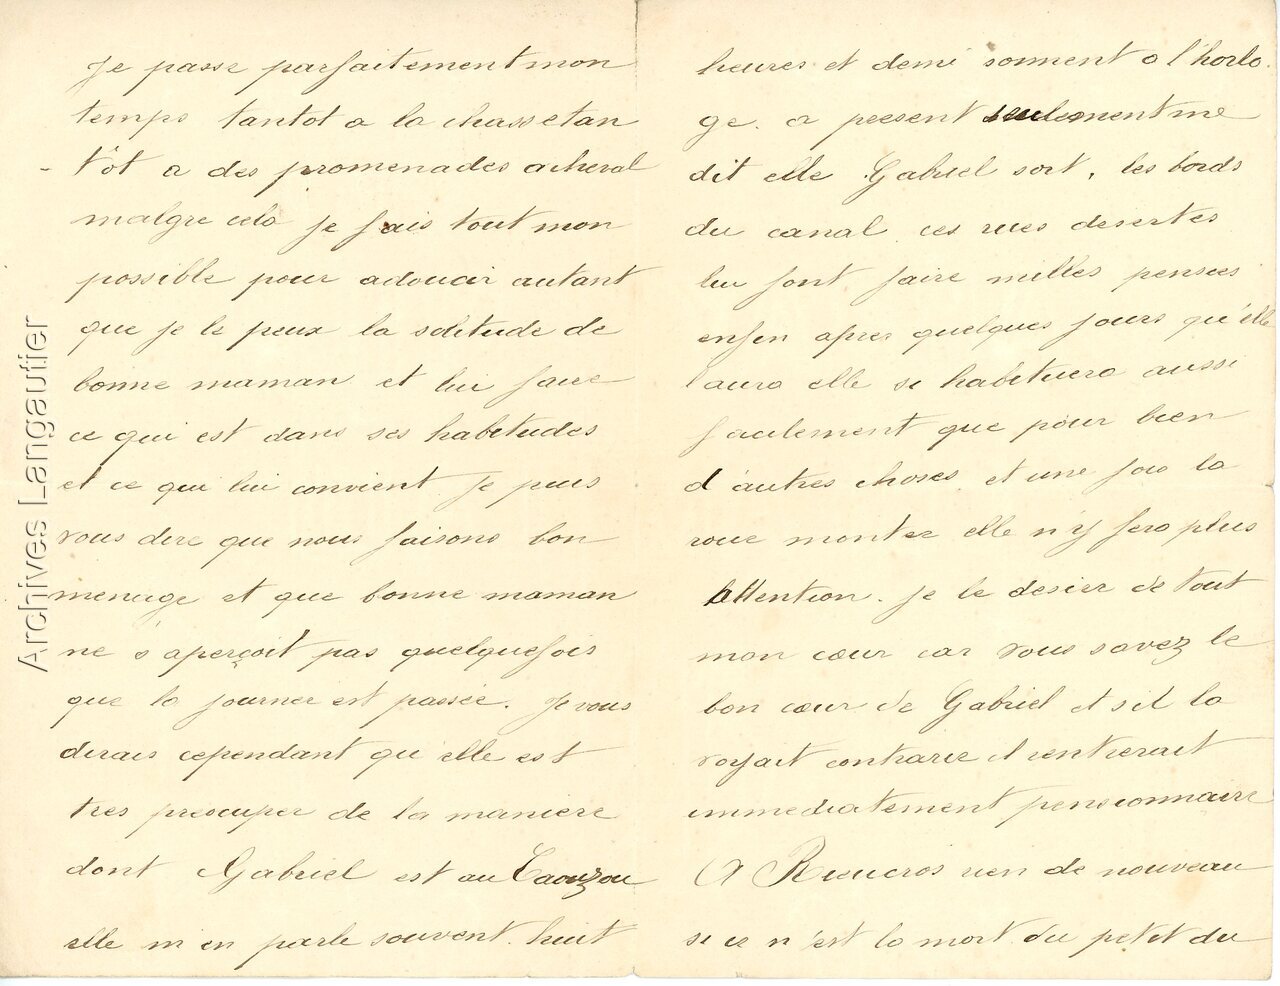 Je passe parfaitement mon
temps tantot a la chasse tan
- tôt a des promenades a cheval
malgre cela je fais tout mon
possible pour adoucir autant
que je le peux la solitude de
bonne maman et lui faire
ce qui est dans ses habitudes
et ce qui lui convient Je puis
vous dire que nous faisons bon
menage et que bonne maman
ne s'aperçoit pas quelquefois
que la journer est passée. Je vous
dirais cependant qu'elle est
tres preocuper de la maniere
dont Gabriel est au Caouzou
elle m'en parle souvent. huit
heures et demi sonnent a l'horlo
ge. a present seulement me
dit elle Gabriel sort, les bords
du canal ces rues desertes
lui font faire milles pensees
enfin apres quelques jours qu'elle
l'aura elle si habituera aussi
facilement que pour bien
d'autres choses et une fois la
roue montee elle n'y fera plus
attention. Je le desire de tout
mon cœur car vous savez le
bon cœur de Gabriel et s'il la
voyait contrarier il rentrerait
immediatement pensionnaire
A Rieucros rien de nouveau
si ce n'est la mort du petit du
Archives Langautier